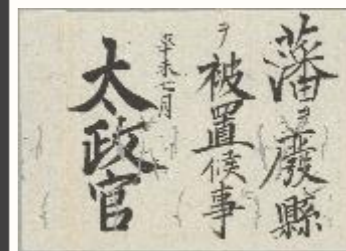 藩ヲ廢縣
ヲ被置候事
辛未七月
太政官